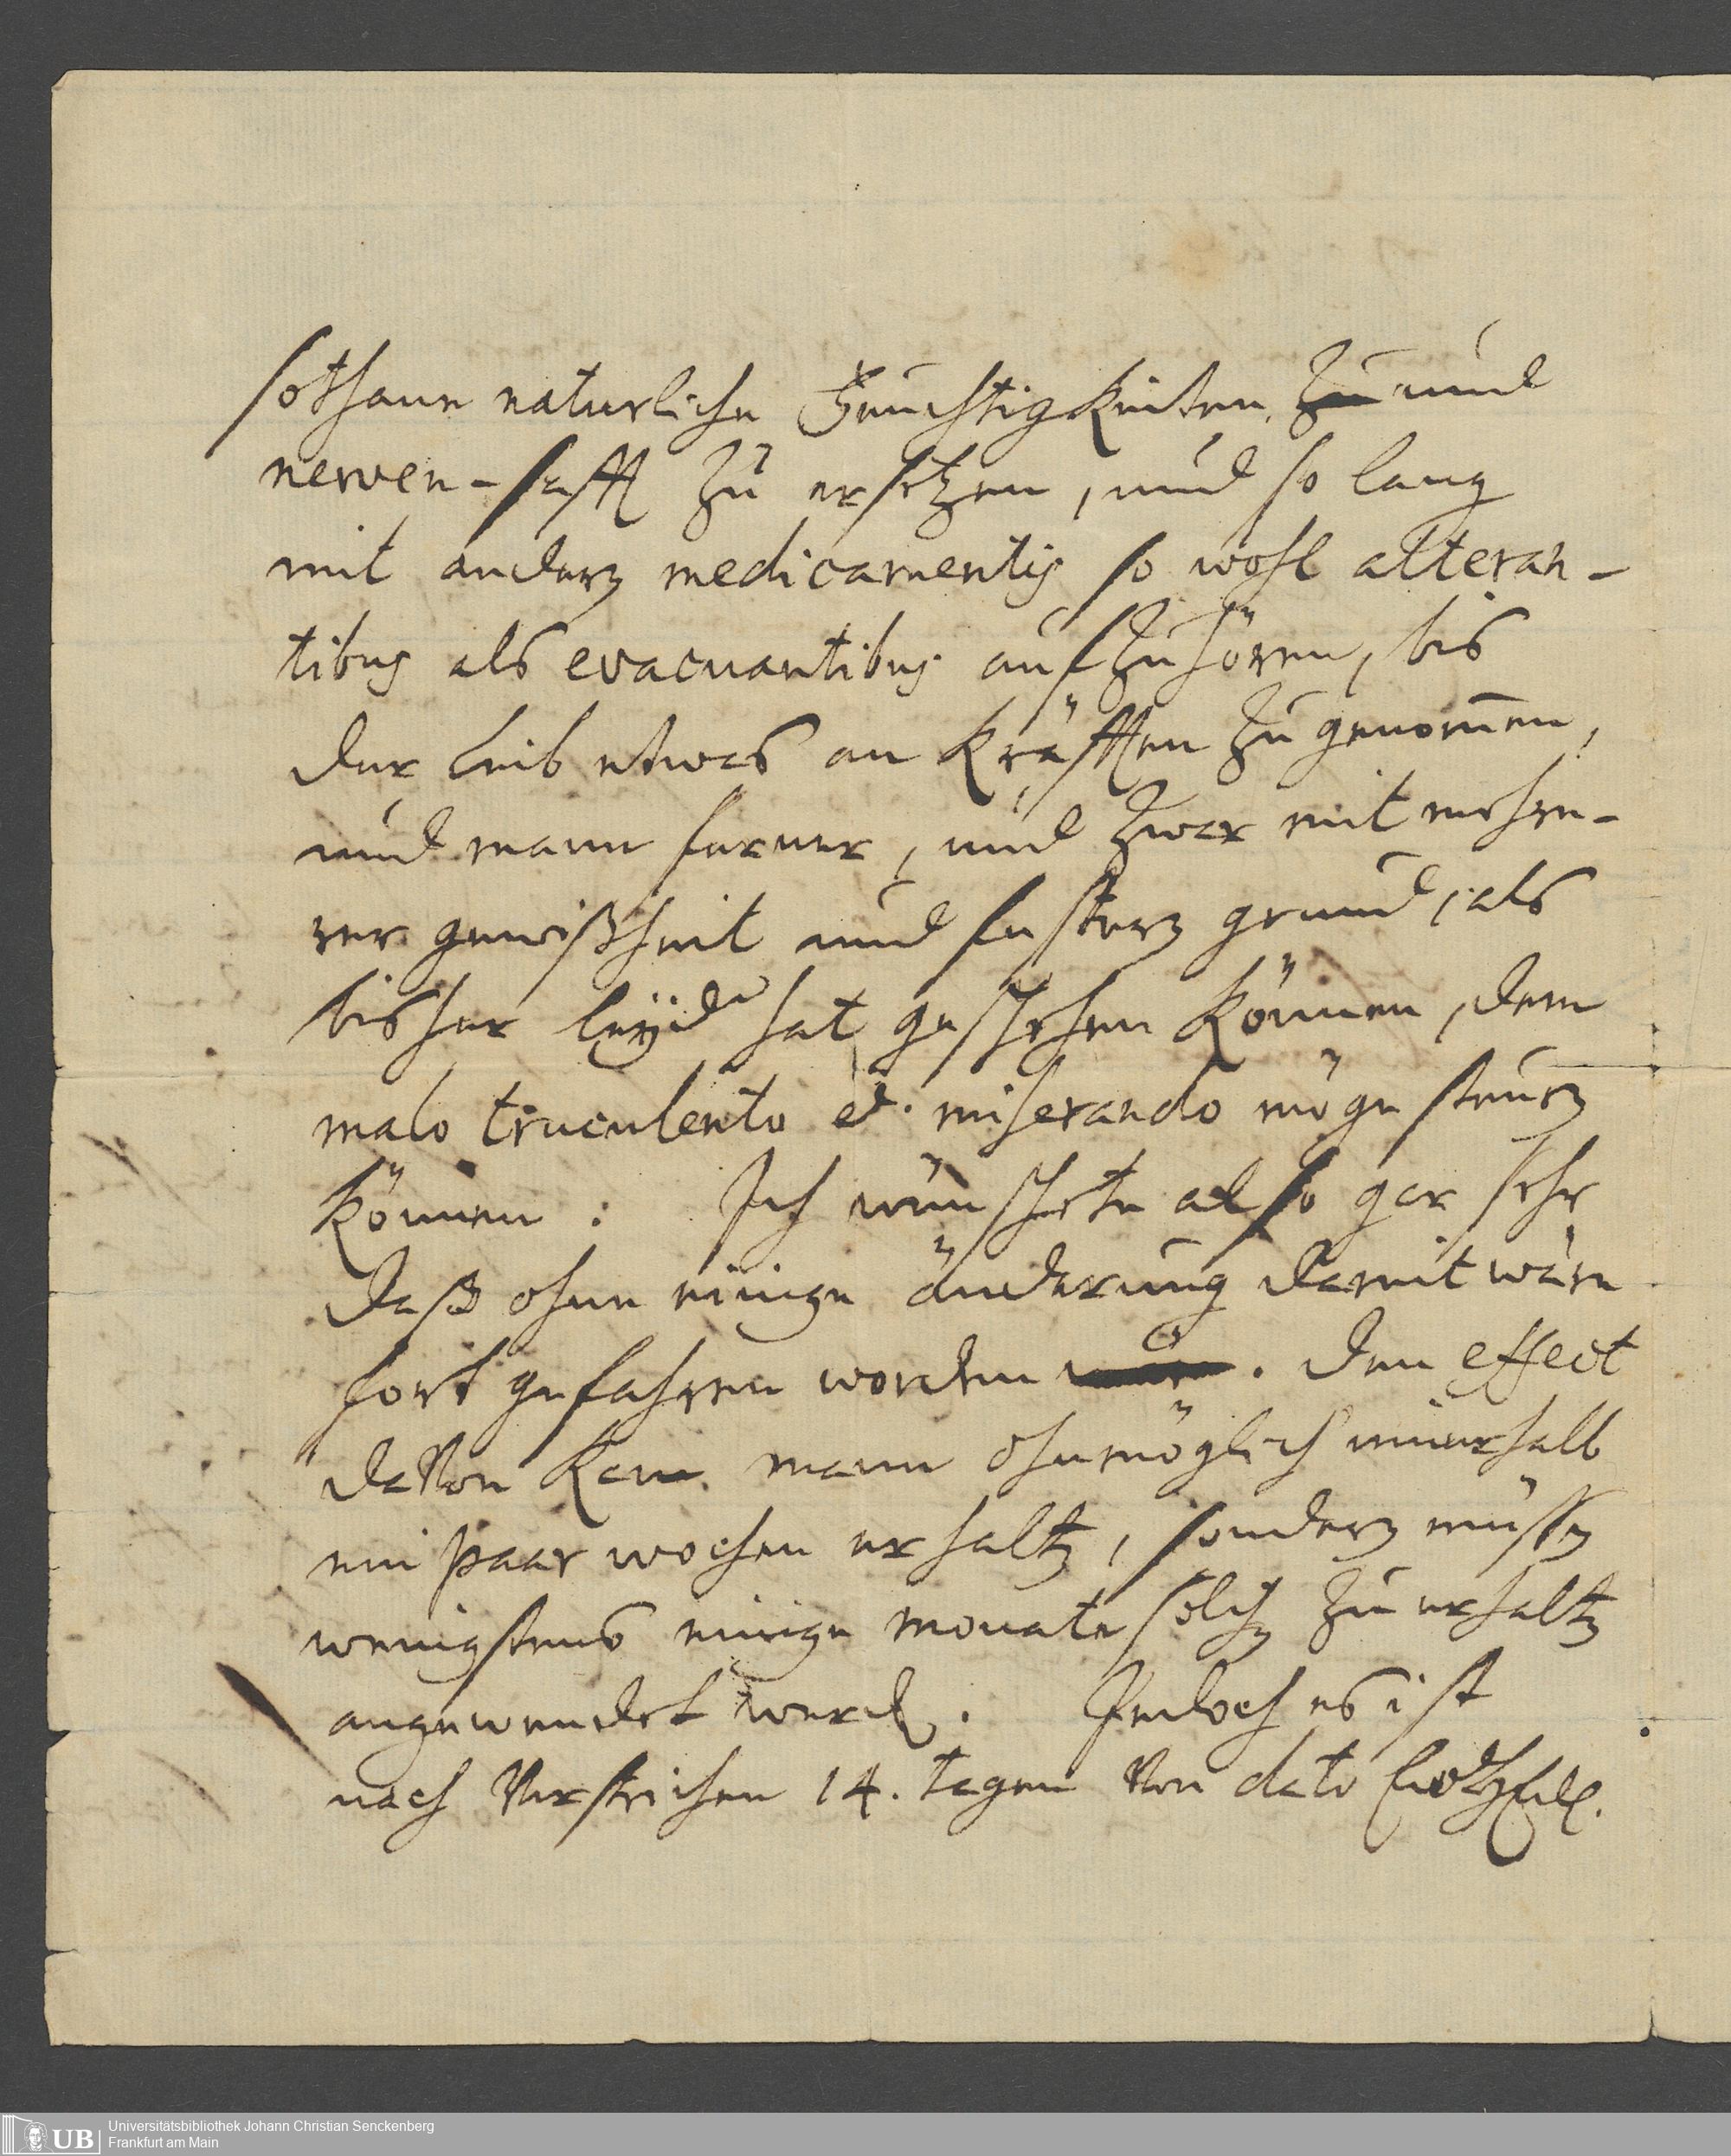 sothane naturliche Feuchtigkeiten zu und
nerven-safft zu ersetzen, und so lang
mit andern medicamentis so wohl alteran-
tibus als evacuantibus aufzuhören, bis
der leib etwas an kräfften zu genomen,
und mann ferner, und zwar mit mehre-
rer gewißheit und festern grund, als
bisher leyder hat geschehen können, dem
malo truculento et miserando möge steuern
können. Ich wünschete also gar sehr
daß ohne einige änderung damit wäre
fort gefahren worden. Den effect
davon kan mann ohnmöglich innerhalb
ein paar wochen erhalten, sondern müssen
wenigstens einige monate solchen zu erhalten
angewendet werden. Jedoch es ist
nach verstrichen 14. tagen von dato
Universitätsbibliothek Johann Christian Senckenberg
Frankfurt am Main
UB